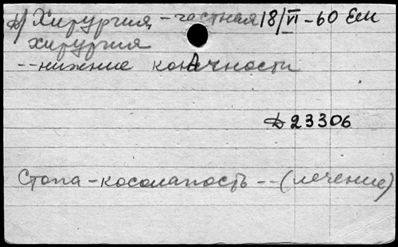 д) Хирургия - частная 18/VI-60 Еш
хирургия
-- нижние конечности
Д 23306
Стопа - косолапость -- (лечение)